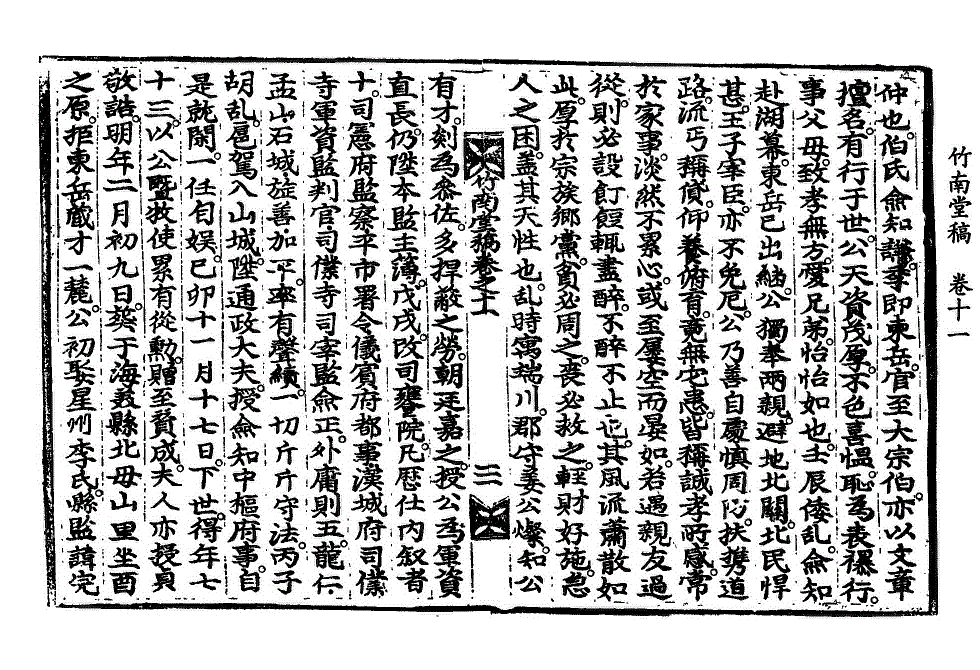 竹南堂稿 卷十一
仲也。伯氏僉知諱季卽東岳。官至大宗伯。亦以文章
擅名。有行于世。公天資茂厚。不色喜慍。恥爲表襮。行
事父母。致孝無方。愛兄弟。怡怡如也。壬辰倭亂。僉知
赴湖幕。東岳已出繼。公獨奉兩親。避地北關。北民悍
甚。王子宰臣。亦不免厄。公乃善自處愼周防。扶携道
路。流丐稱貸。仰養俯育。竟無它患。皆稱誠孝所感。常
於家事。淡然不累心。或至屢空而晏如。若遇親友過
從。則必設飣餖。輒盡醉。不醉不止也。其風流蕭散如
此。厚於宗族鄕黨。貧必周之。喪必救之。輕財好施。急
人之困。盖其天性也。亂時寓瑞川。郡守姜公燦。知公
竹南堂稿卷之十一
三
有才。剡爲參佐。多捍蔽之勞。朝廷嘉之。授公爲軍資
直長。仍陞本監主簿。戊戌。改司饔院。凡歷仕內敍者
十。司憲府監察。平市署令。儀賓府都事。漢城府司僕
寺軍資監判官。司僕寺司宰監僉正。外庸則五。龍仁
孟山石城旌善加平。率有聲績。一切斤斤守法。丙子
胡亂。扈駕入山城。陞通政大夫。授僉知中樞府事。自
是就閑。一任自娛。己卯十一月十七日。下世。得年七
十三。以公曁敉使累有從勳。贈至贊成。夫人亦授貞
敬誥。明年二月初九日。葬于海敎縣北母山里坐酉
之原。拒東岳藏才一麓。公初娶星州李氏。縣監諱完